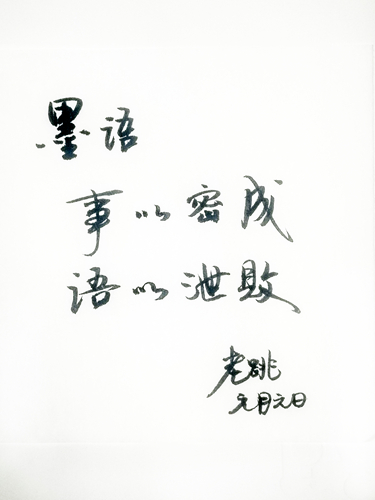 墨语
事以密成
语以泄败
老跳
元月元日